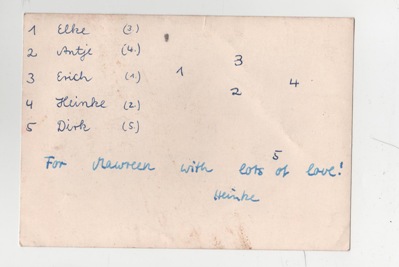 1 Elke (3)
2 Antje (4)
3 Erich (1)
4 Heinke (2)
5 Dirk (5)
3
1
4
2
5
For Mawreen with lots of love!
Heinke